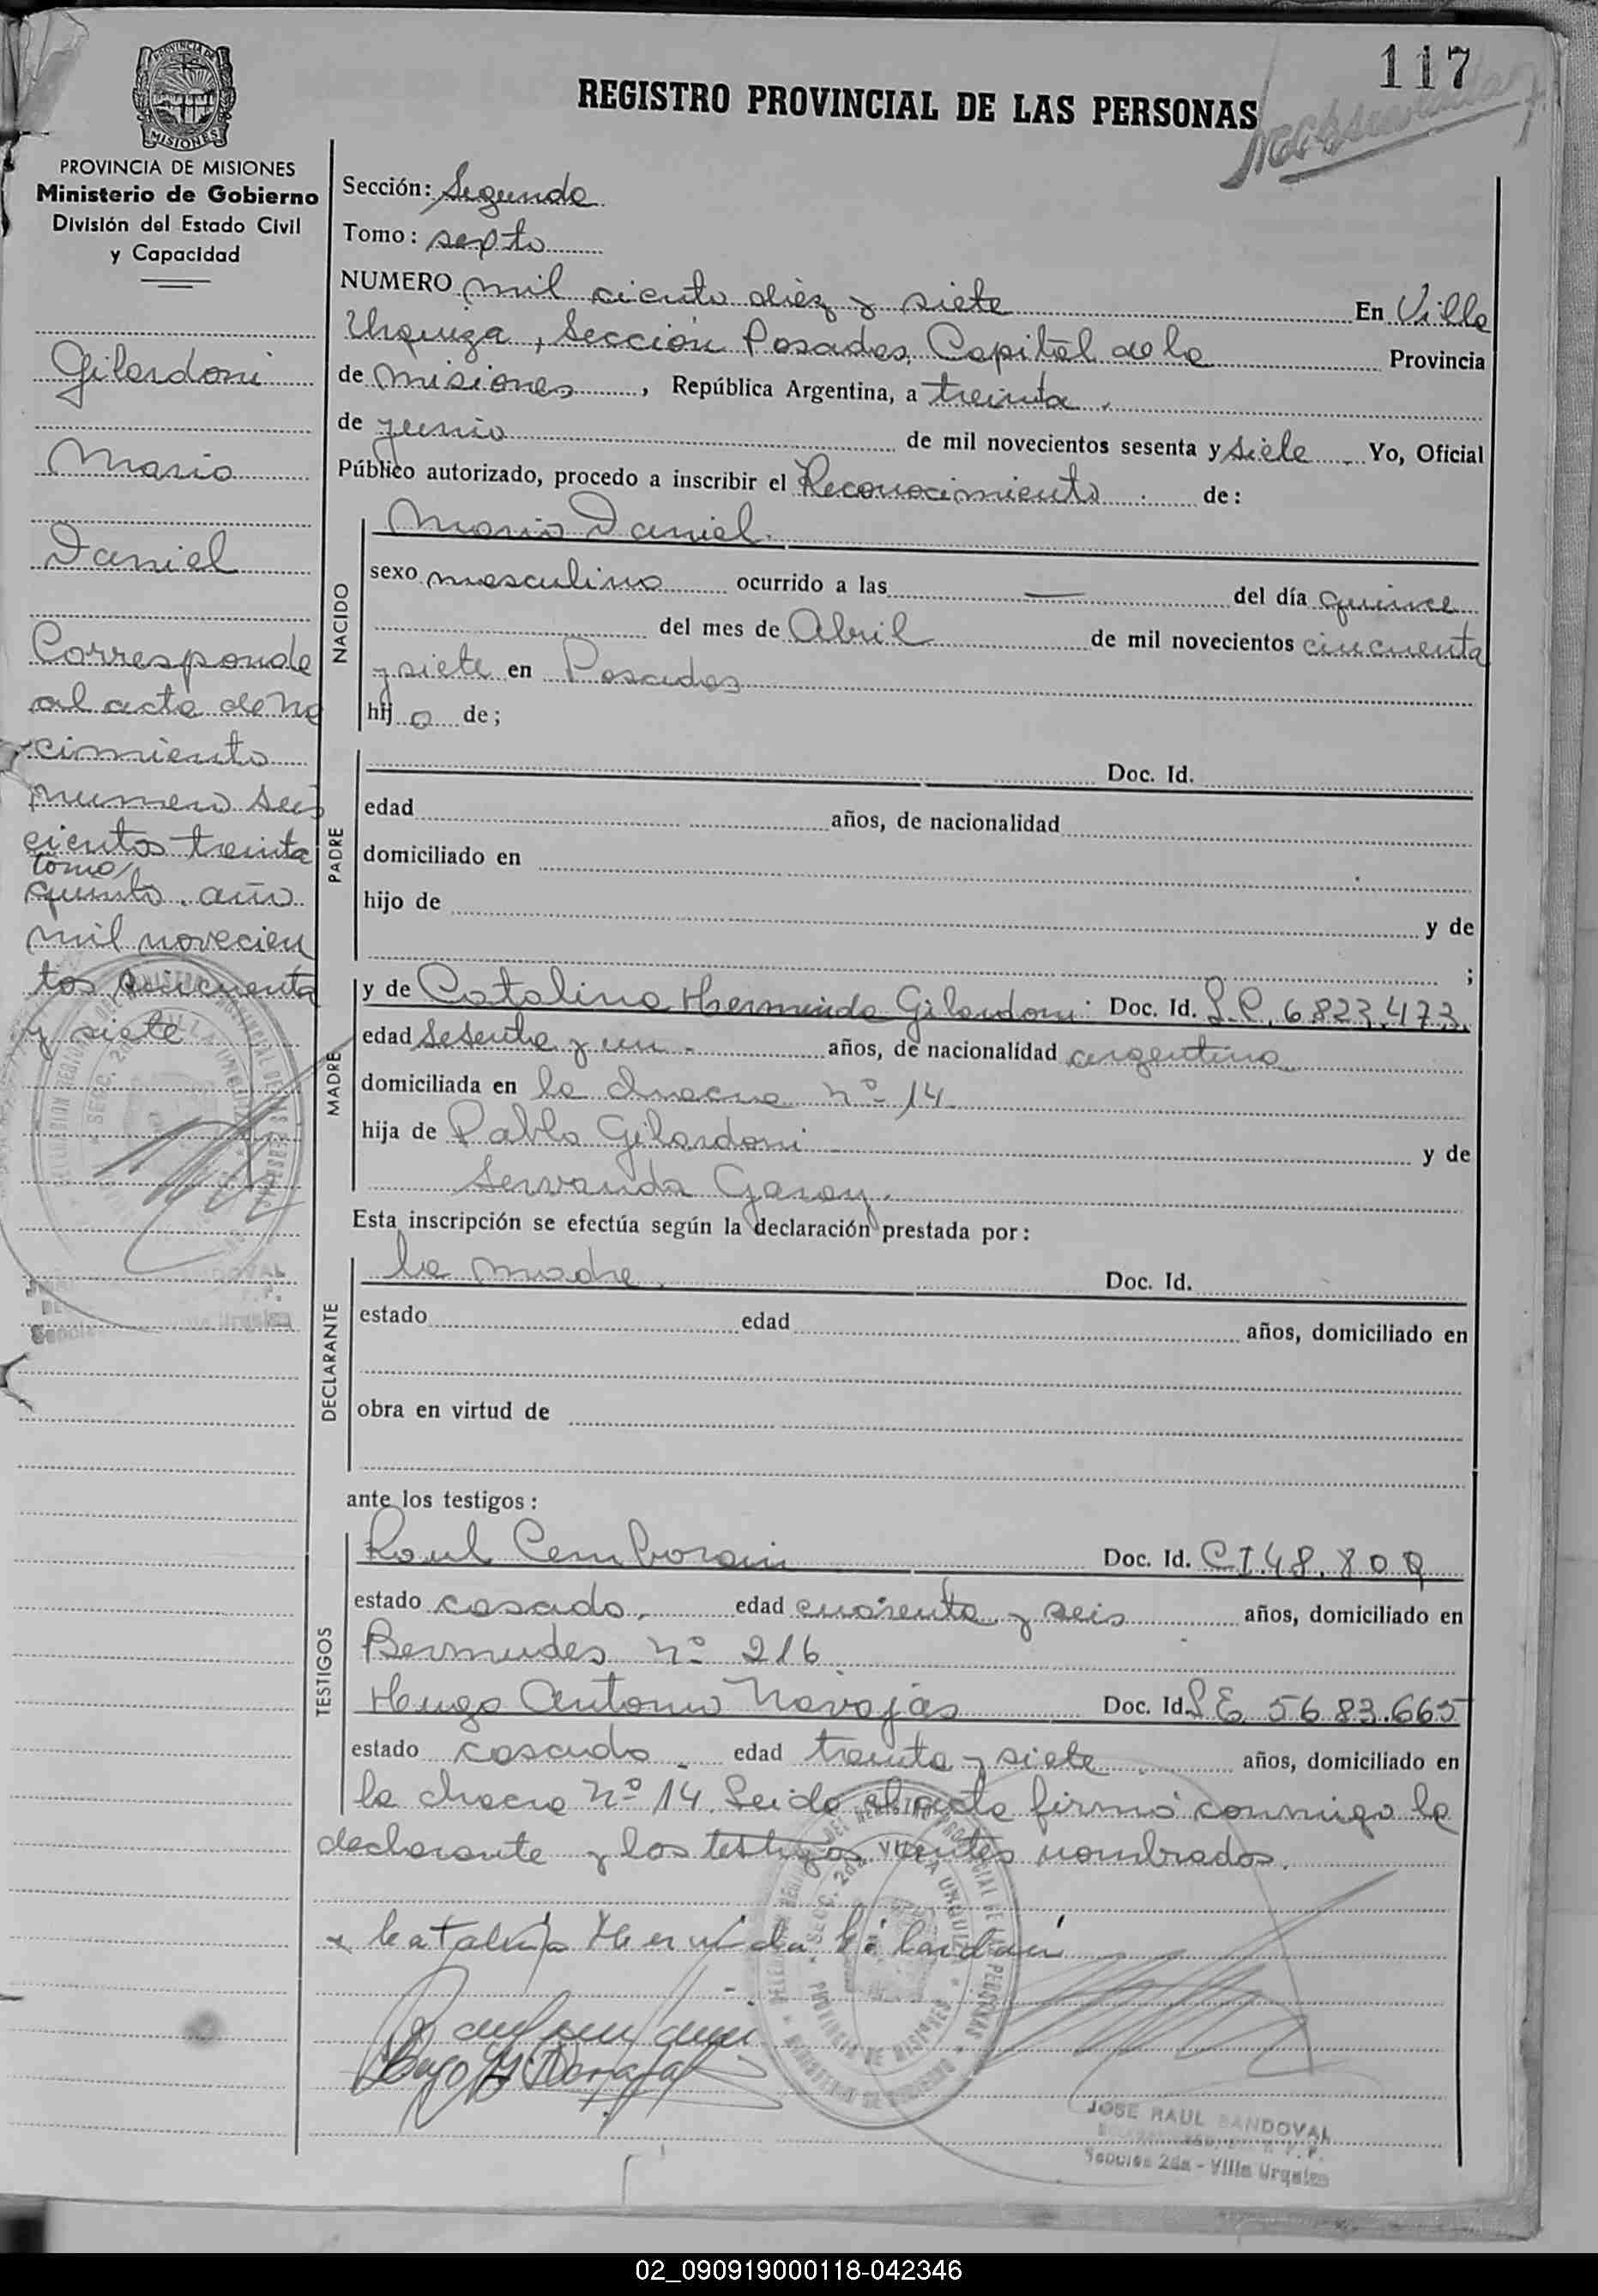 117
REGISTRO PROVINCIAL DE LAS PERSONAS
PROVINCIA DE MISIONES
Ministerio de Gobierno
División del Estado Civil
y Capacidad
Gilardoni
Mario
Daniel
Corresponde
al acta de na
cimiento
numero seis
cientos treinta
tomo
quinto. año
mil novecien
tos cincuenta
y siete
Sección: Segunda
Tomo: septo
NUMERO mil ciento diez y siete En Villa
Urquiza, Sección Posadas, Capital de la Provincia
de Misiones, República Argentina, a treinta
de junio de mil novecientos sesenta y siete Yo, Oficial
Público autorizado, procedo a inscribir el Reconocimiento de:
NACIDO
Mario Daniel
sexo masculino ocurrido a las — del día quince
del mes de Abril de mil novecientos cincuenta
y siete en Posadas
hijo de;
PADRE
Doc. Id.
edad años, de nacionalidad
domiciliado en
hijo de y de
;
MADRE
y de Catalina Herminda Gilardoni Doc. Id. L.C. 6823.473.
edad sesenta y un años, de nacionalidad argentina
domiciliada en la chacra nº 14
hija de Pablo Gilardoni y de
Servanda Garay.
Esta inscripción se efectúa según la declaración prestada por:
DECLARANTE
la madre. Doc. Id.
estado edad años, domiciliado en
obra en virtud de
ante los testigos:
TESTIGOS
Raul Cemborain Doc. Id. C.I. 48.809
estado casado. edad cuarenta y seis años, domiciliado en
Bermudes nº 216
Hugo Antonio Navajas Doc. Id. L.E. 5683.665
estado casado edad treinta y siete años, domiciliado en
la chacra nº 14. Leido el acta firmó conmigo la
declarante y los testigos antes nombrados.
x Catalina Herminda Gilardoni
JOSE RAUL SANDOVAL
Sección 2da - Villa Urquiza
02_090919000118-042346